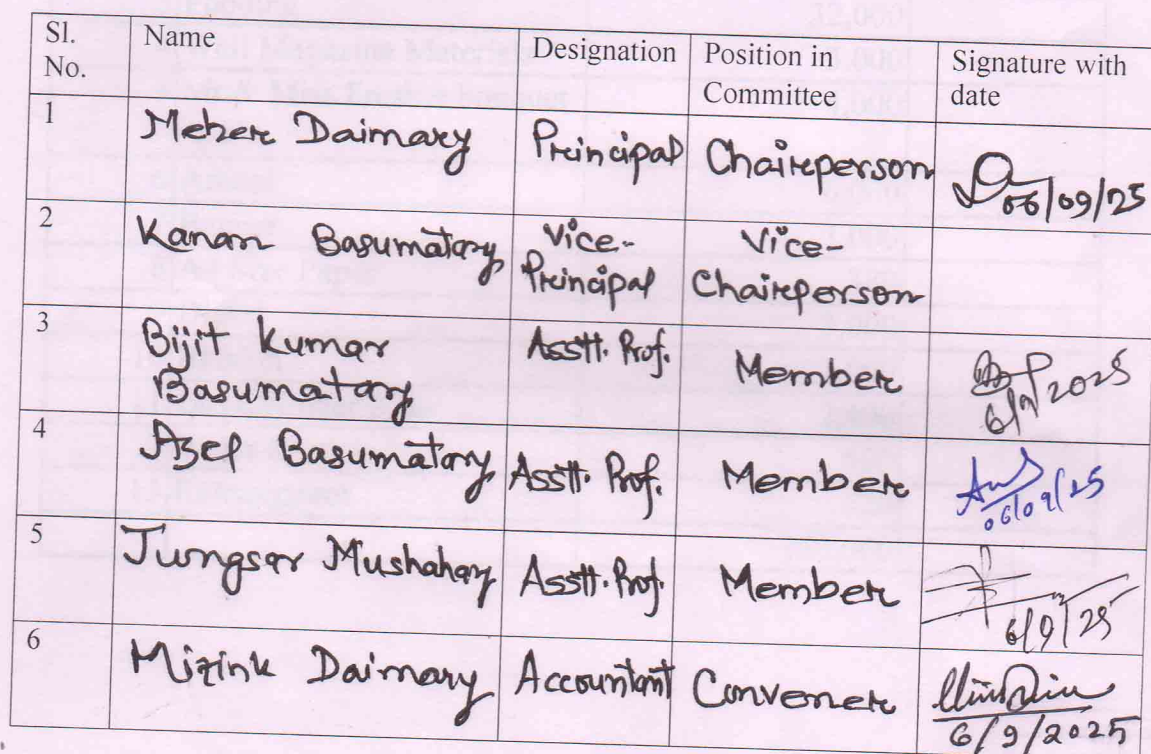 Sl. No. Name Designation Position in Committee Signature with date
1 Meher Daimary Principal Chairperson 06/09/25
2 Kanan Basumatary Vice- Principal Vice- Chairperson
3 Bijit Kumar Basumatary Asstt. Prof. Member 6/9/2025
4 Azef Basumatary Asstt. Prof. Member 06/09/25
5 Jungsar Mushahary Asstt. Prof. Member 6/9/25
6 Mizink Daimary Accountant Convener 6/9/2025